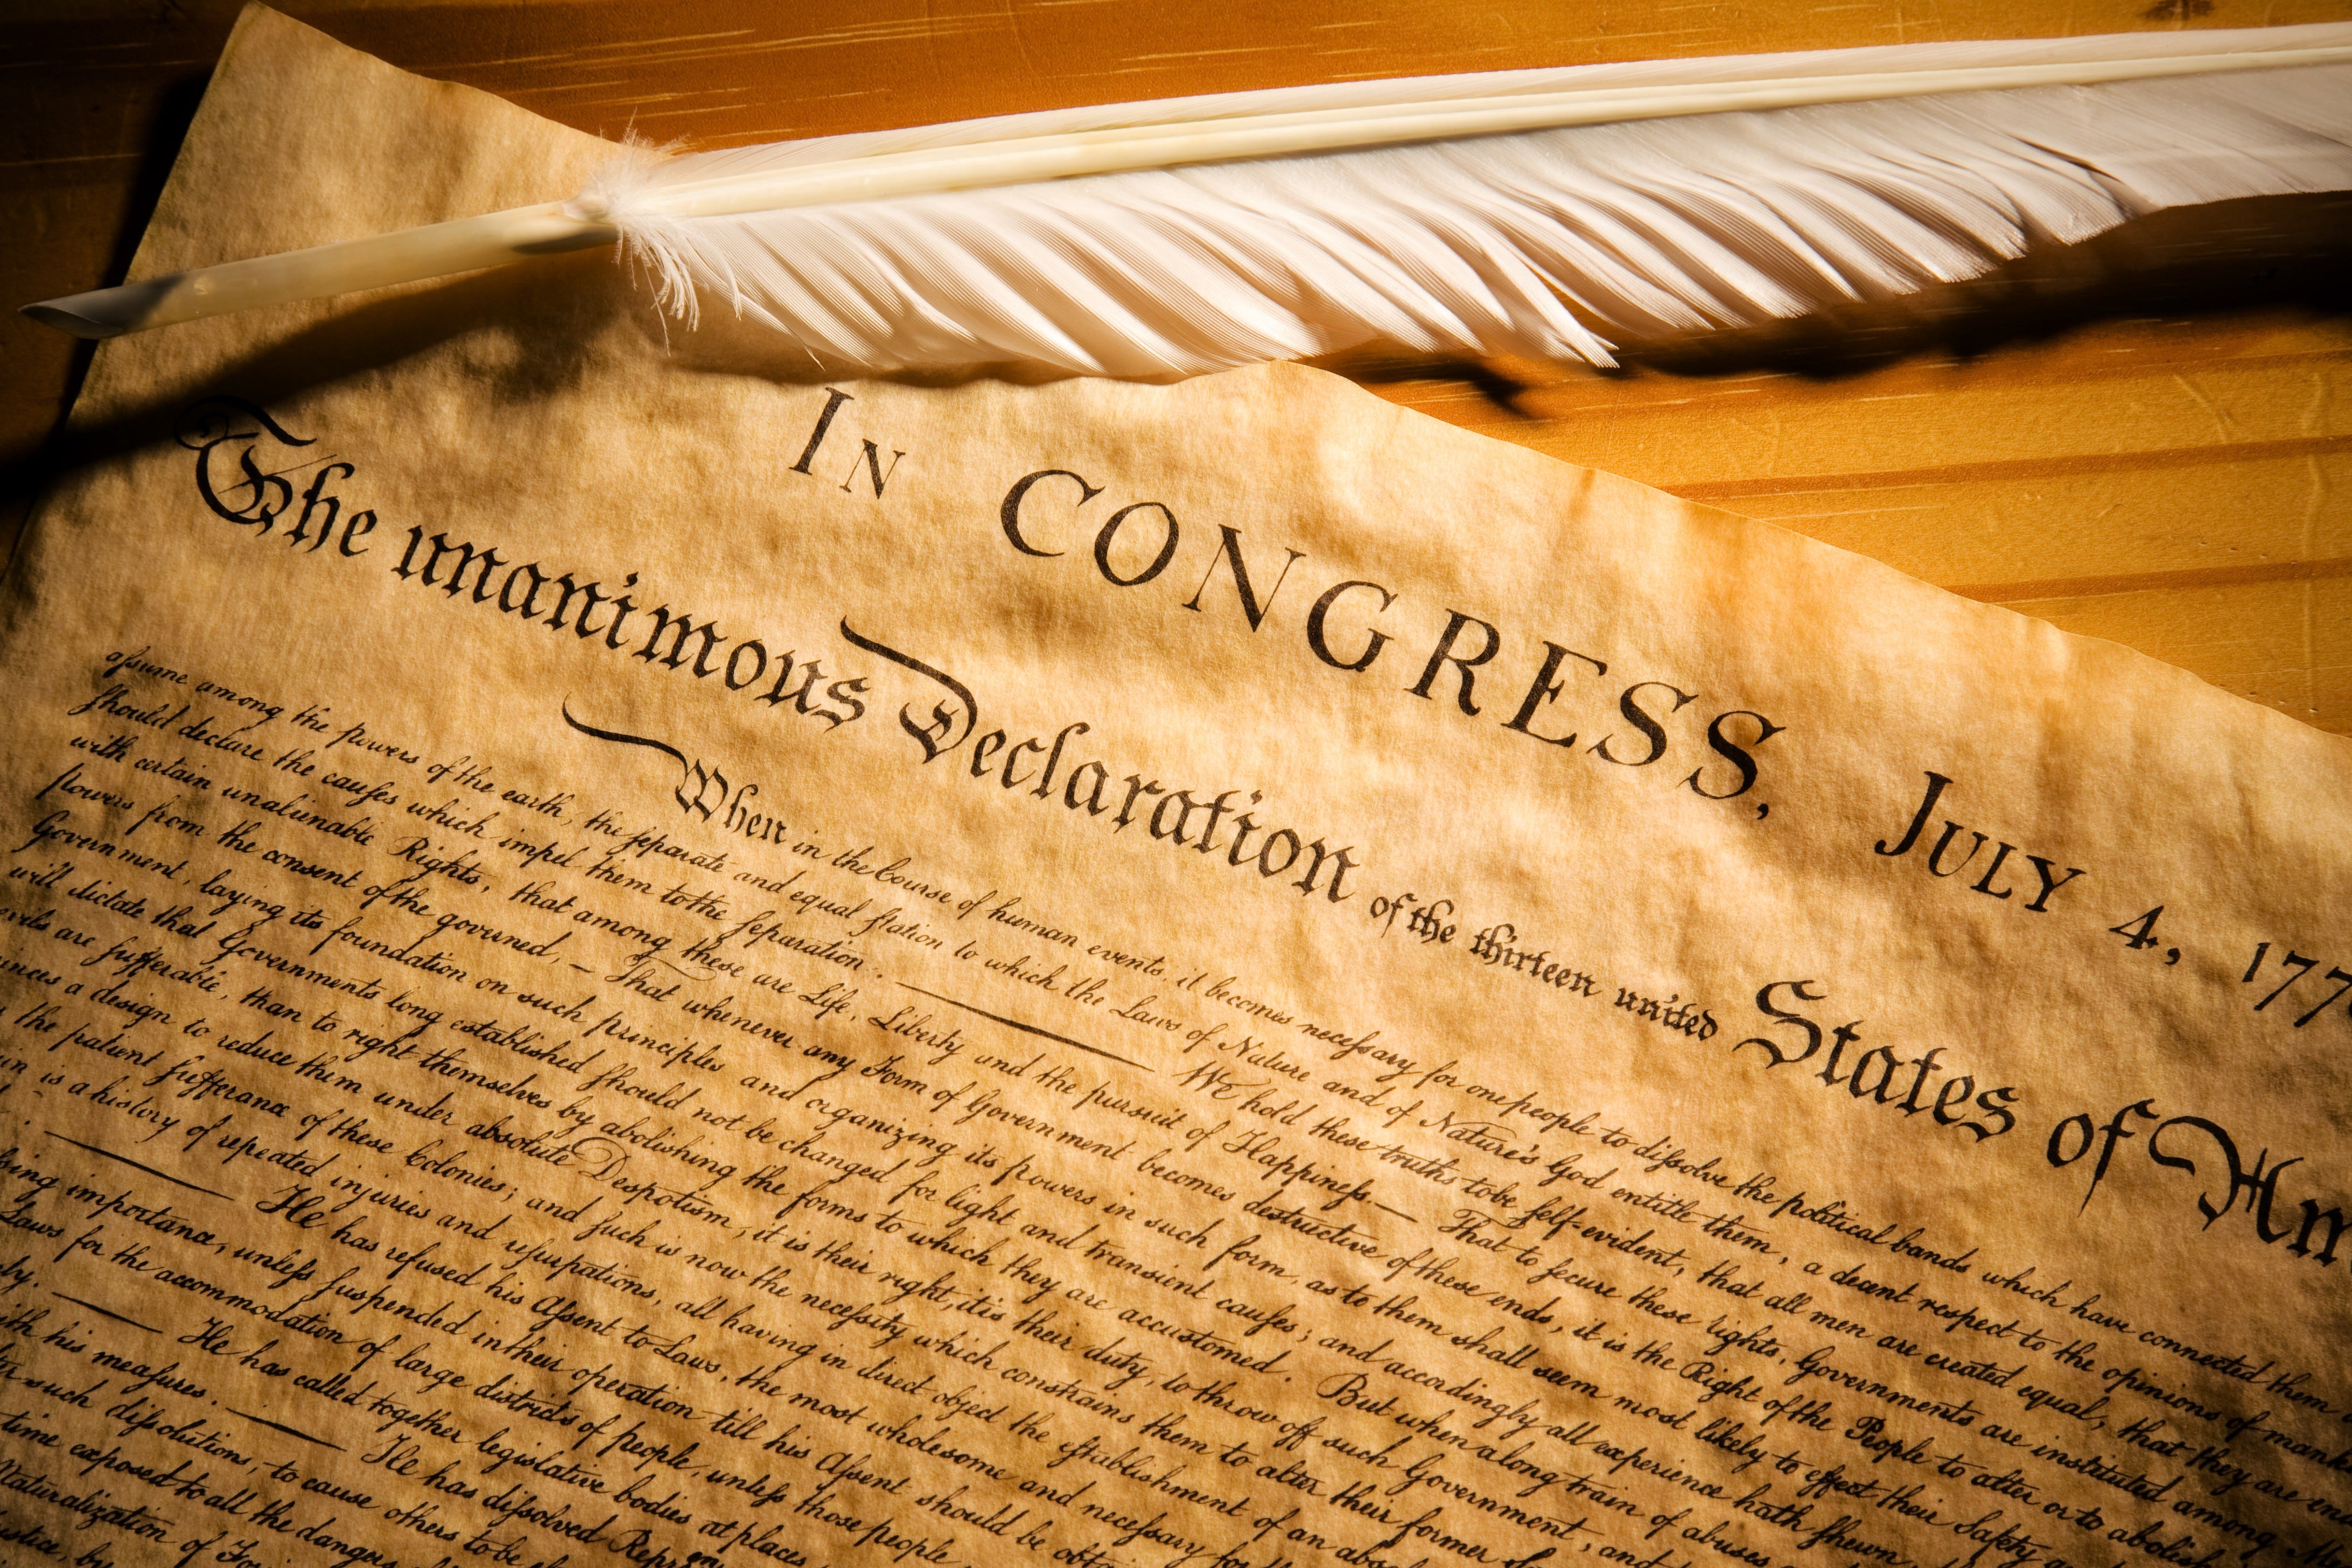 In CONGRESS, July 4, 177
The unanimous Declaration of the thirteen united States of Am
When in the Course of human events, it becomes necessary for one people to dissolve the political bands which have connected them
assume among the powers of the earth, the separate and equal station to which the Laws of Nature and of Nature's God entitle them, a decent respect to the opinions of mank
should declare the causes which impel them to the separation. —— We hold these truths to be self-evident, that all men are created equal, that they are en
with certain unalienable Rights, that among these are Life, Liberty and the pursuit of Happiness.— That to secure these rights, Governments are instituted among M
powers from the consent of the governed, — That whenever any Form of Government becomes destructive of these ends, it is the Right of the People to alter or to aboli
Government, laying its foundation on such principles and organizing its powers in such form, as to them shall seem most likely to effect their Safety
will dictate that Governments long established should not be changed for light and transient causes; and accordingly all experience hath shewn
evils are sufferable, than to right themselves by abolishing the forms to which they are accustomed. But when a long train of abuses
inces a design to reduce them under absolute Despotism, it is their right, it is their duty, to throw off such Government, and
the patient sufferance of these Colonies; and such is now the necessity which constrains them to alter their former
in is a history of repeated injuries and usurpations, all having in direct object the establishment of an abso
—— He has refused his Assent to Laws, the most wholesome and necessary for
sing importance, unless suspended in their operation till his Assent should be obt
Laws for the accommodation of large districts of people, unless those people
ly. —— He has called together legislative bodies at places
ith his measures. —— He has dissolved Repr
such dissolutions, to cause others to be
time exposed to all the dangers
Naturalization of For
ustice, by